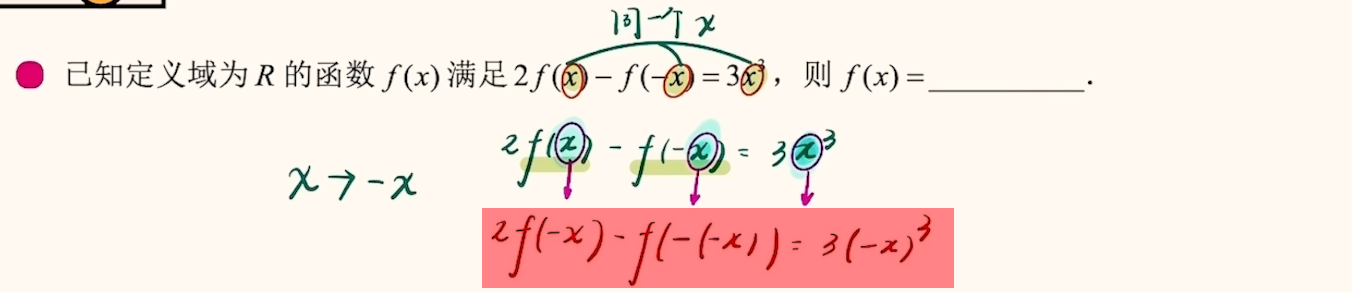 同一个 x
已知定义域为 R 的函数 f(x) 满足 2f(x) − f(−x) = 3x³，则 f(x) = __________.
2f(x) - f(-x) = 3x³
x → -x
2f(-x) - f(-(-x)) = 3(-x)³